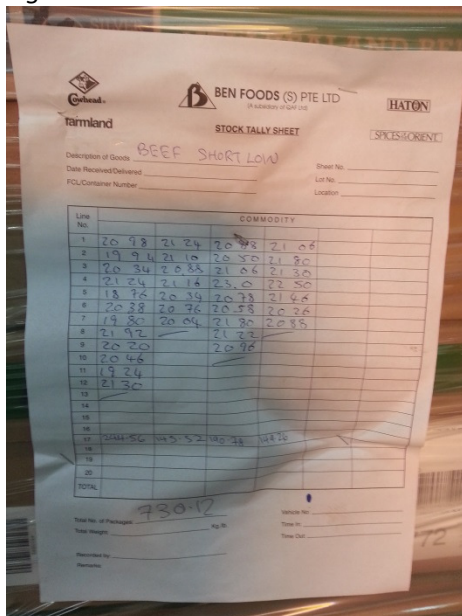 Cowhead
BEN FOODS (S) PTE LTD
(A subsidiary of QAF Ltd)
HATON
farmland
STOCK TALLY SHEET
SPICES OF THE ORIENT
Description of Goods BEEF SHORT LOW
Date Received/Delivered
FCL/Container Number
Sheet No.
Lot No.
Location
Line No.
COMMODITY
1 20 98 21 24 20 88 21 06
2 19 94 21 10 20 50 21 80
3 20 34 20 88 21 06 21 30
4 21 24 21 16 23.0 22 50
5 18 76 20 34 20 78 21 46
6 20 38 20 76 20 58 20 26
7 19 80 20 04 21 80 20 88
8 21 92 21 22
9 20 20 20 96
10 20 46
11 19 24
12 21 30
13
14
15
16
17 244.56 145.52 190.78
18
19
20
TOTAL
730.12
Total No. of Packages
Total Weight
Kg/lb
Vehicle No.
Time In
Time Out
Recorded by
Remarks
72